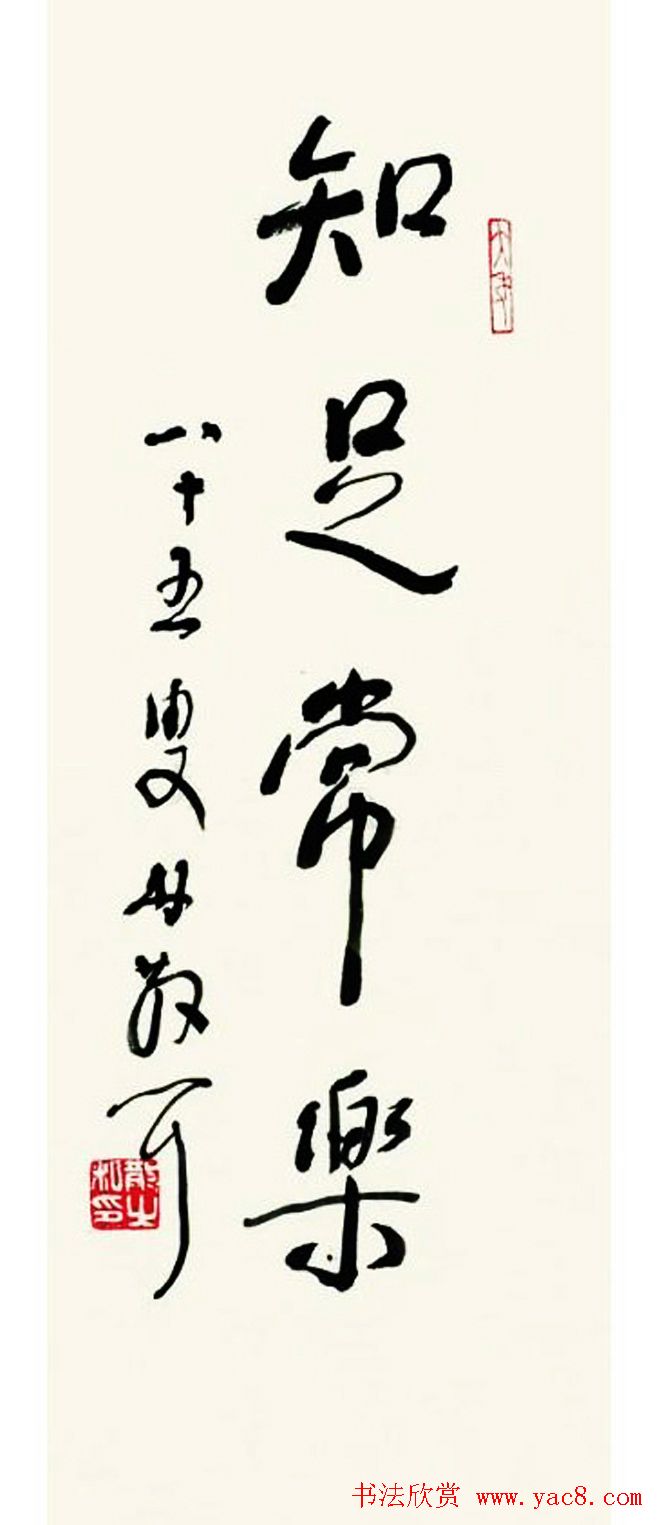 知足常樂
八十五叟林散耳
散之私印
书法欣赏 www.yac8.com